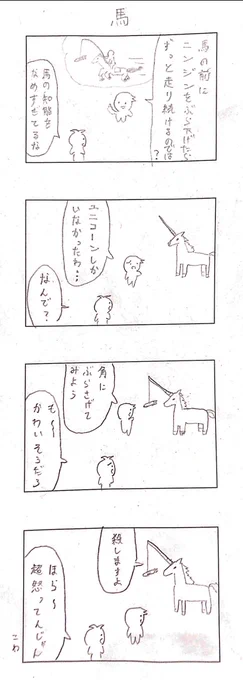 馬
馬の前に
ニンジンをぶら下げたら
ずっと走り続けるのでは?
馬の知能を
なめすぎてるな
ユニコーンしか
いなかったわ…
なんで?
角に
ぶらさげて
みよう
も〜〜
かわいそうだろ
殺しますよ
ほら〜
超怒ってんじゃん
こわ